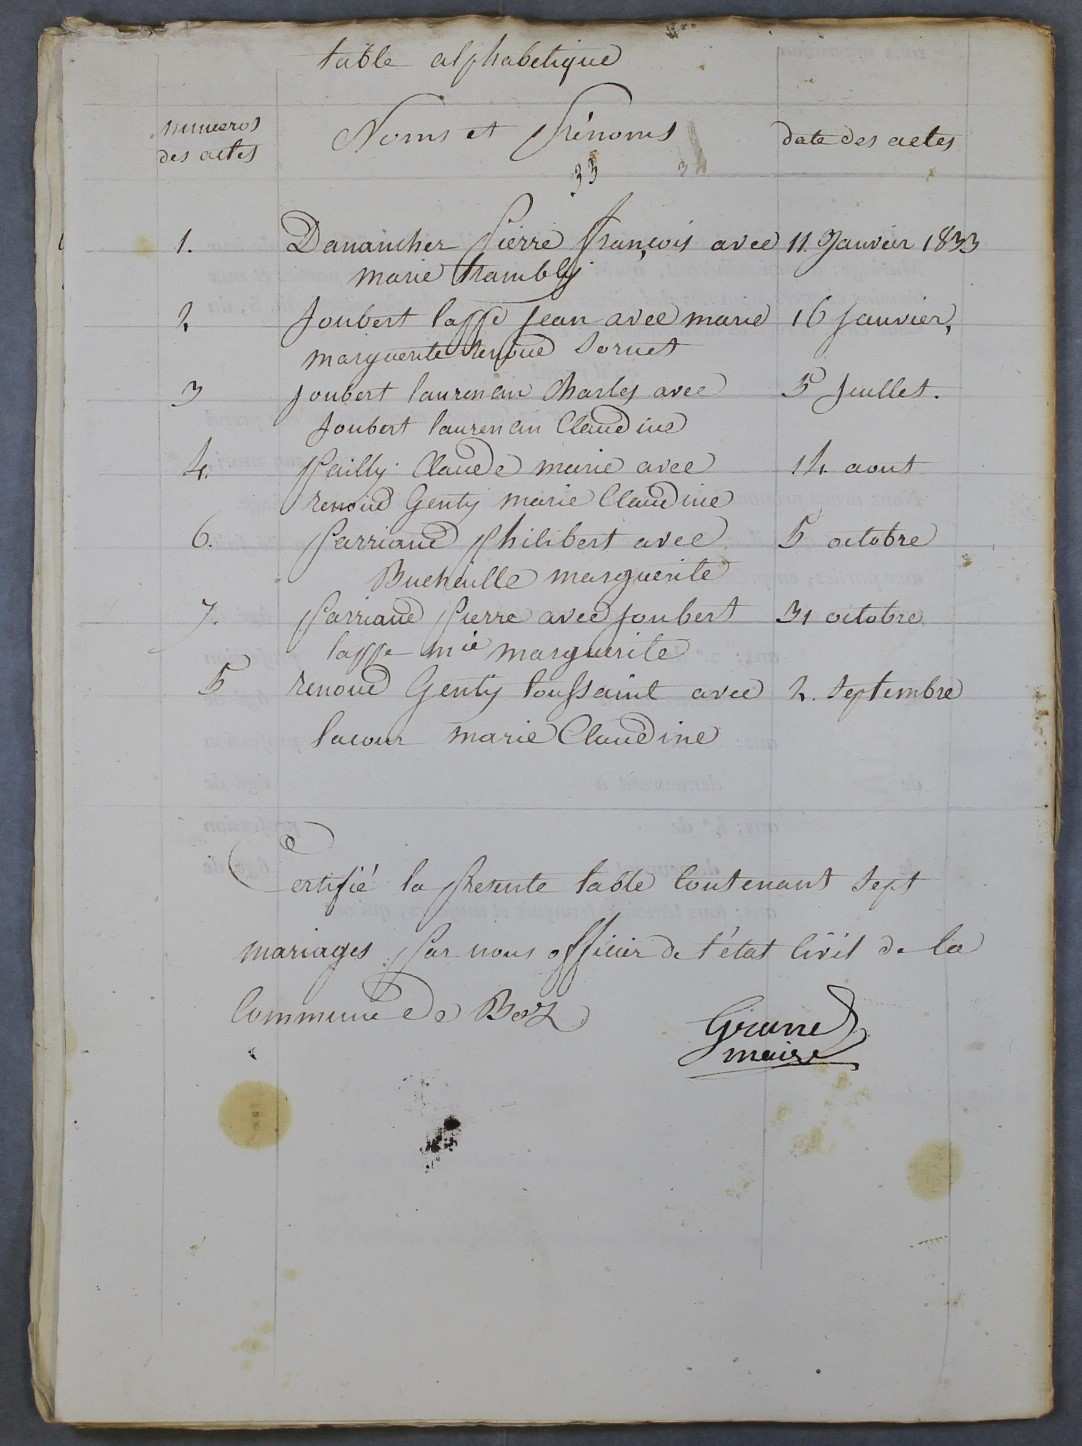 table alphabetique
numeros des actes
Noms et Prénoms
date des actes
33 34
1. Danancher Pierre françois avec 11. Janvier 1833
marie trambly
2 Joubert laffe Jean avec marie 16 Janvier,
marguerite renoud Sornet
3 Joubert laurenan Charles avec 5 Juillet.
Joubert laurenan Claudine
4. Pailly Claude marie avec 14 aout
renoud Genty marie Claudine
6. Parriaud Philibert avec 5 octobre
Bucheille marguerite
7. Parriaud Pierre avec Joubert 31 octobre
laffe mie marguerite
5 renoud Genty toussaint avec 2. Septembre
lacour marie Claudine
Certifié la presente table Contenant Sept
mariages par nous officier de l'état Civil de la
Commune de
maire